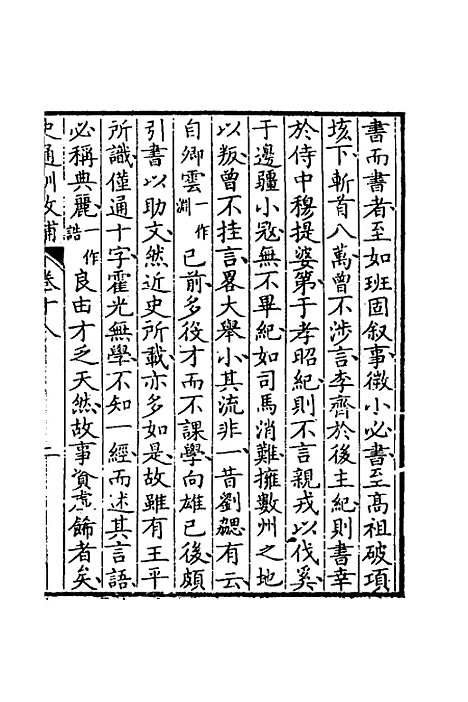 書而書者至如班固叙事微小必書至高祖破項
垓下斬首八萬曾不涉言李齊於後主紀則書幸
於侍中穆提婆第于孝昭紀則不言親戎以伐奚
于邊疆小冦無不畢紀如司馬消難擁數州之地
以叛曾不挂言畧大舉小其流非一昔劉勰有云
自卿雲一作淵已前多役才而不課學向雄已後頗
引書以助文然近史所載亦多如是故雖有王平
所識僅通十字霍光無學不知一經而述其言語
必稱典麗一作誥良由才乏天然故事資虛飾者矣
史通訓故補 卷十八 二